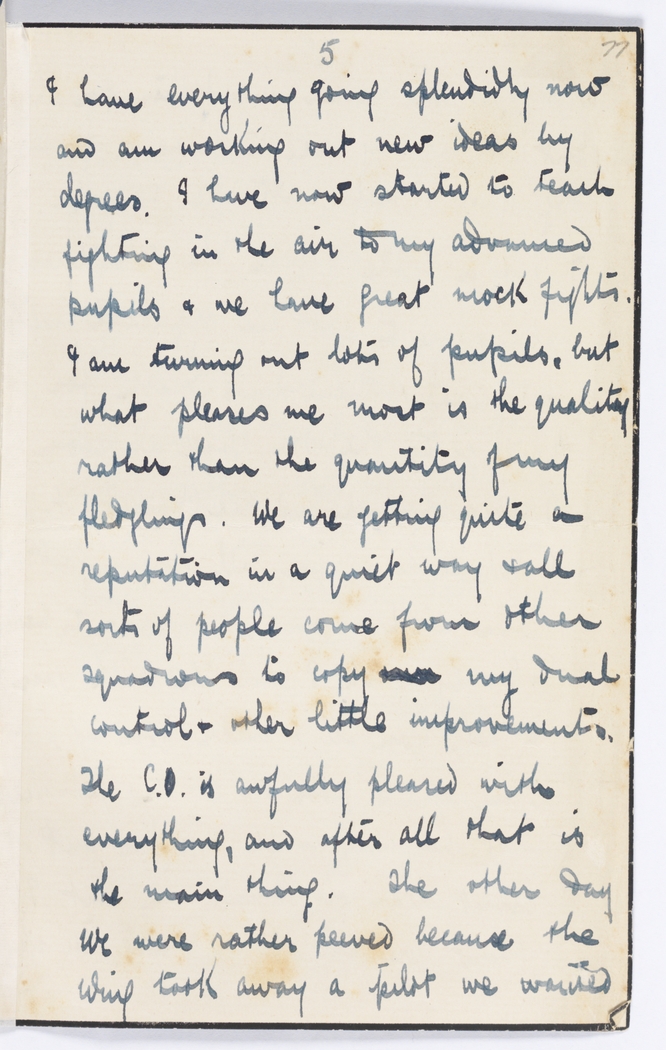 5
77
I have everything going splendidly now
and am working out new ideas by
degrees. I have now started to teach
fighting in the air to my advanced
pupils & we have great mock fights.
I am turning out lots of pupils, but
what pleases me most is the quality
rather than the quantity of my
fledglings. We are getting quite a
reputation in a quiet way & all
sorts of people come from other
squadrons to copy my dual
control & other little improvements.
The C.O. is awfully pleased with
everything, and after all that is
the main thing. The other day
we were rather peeved because the
Wing took away a pilot we wanted